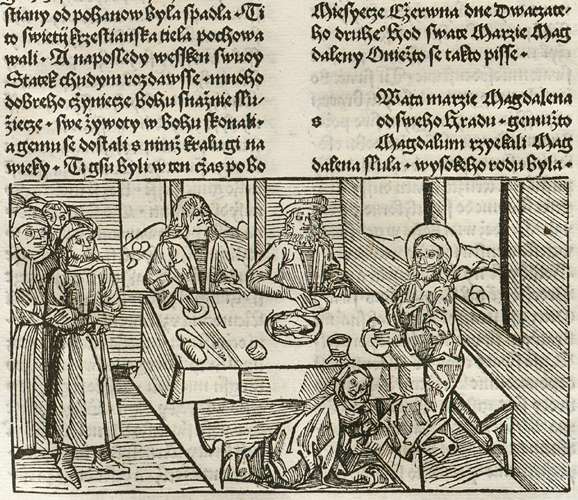 stiany od pohanow byla spadla • Ti
to swietij krzestianska tiela pochowa
wali • A naposledy wessken swuoy
Statek chudym rozdawsse • mnoho
dobreho czyniecze bohu snažnie slu-
žiecze • swe žywoty w bohu skonali •
a gemu se dostali s nimž kralugi na
wieky • Ti gsu byli w ten czas po bo
Miesyecze Czerwna dne Dwaczate-
ho druhe° Hod swate Marzie Mag
daleny O niežto se takto pisse •
Wata marzie Magdalena
s od sweho Hradu • gemužto
Magdalum rzyekali Mag
dalena slula • wysokeho rodu byla •